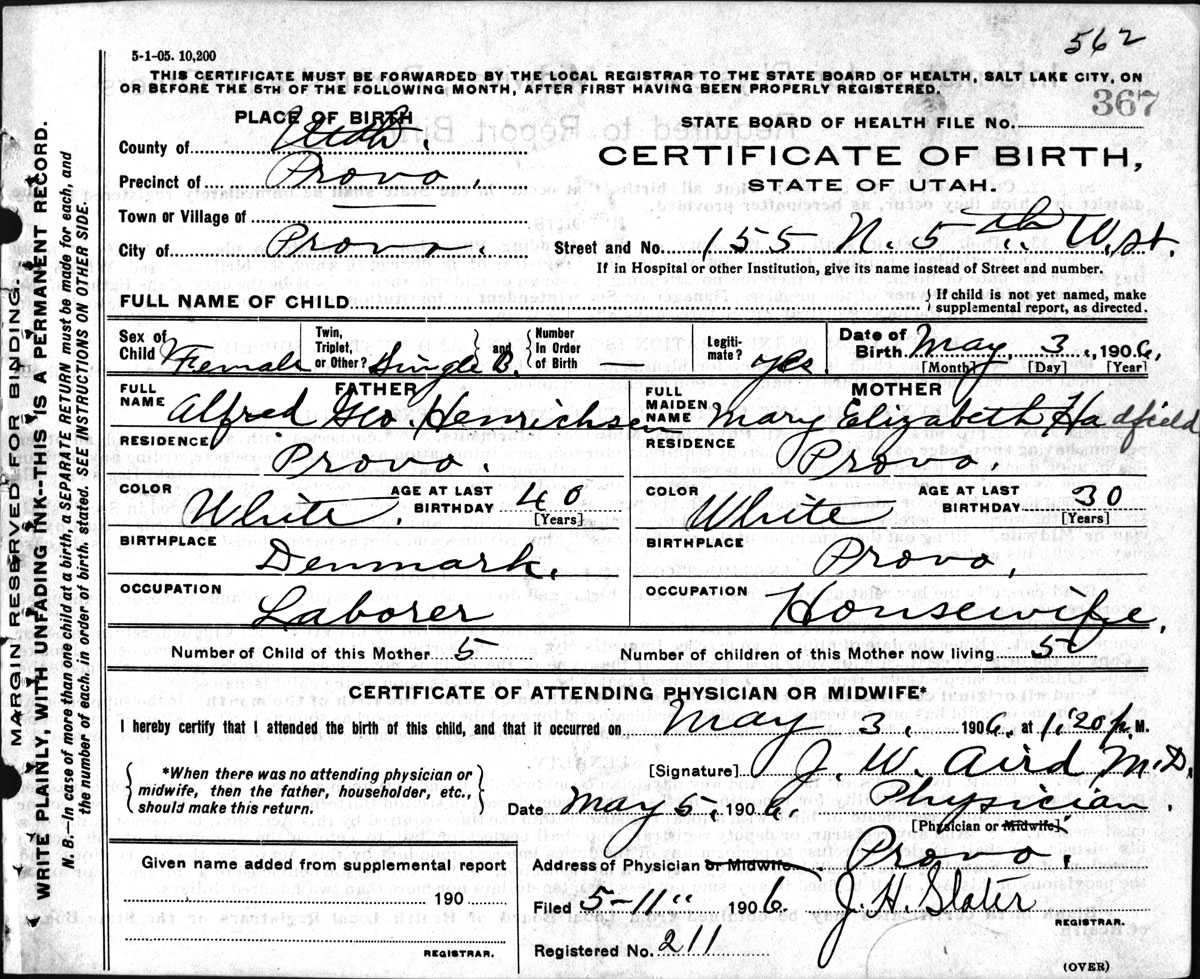 562
5-1-05. 10,200
THIS CERTIFICATE MUST BE FORWARDED BY THE LOCAL REGISTRAR TO THE STATE BOARD OF HEALTH, SALT LAKE CITY, ON
OR BEFORE THE 5TH OF THE FOLLOWING MONTH, AFTER FIRST HAVING BEEN PROPERLY REGISTERED.
367
PLACE OF BIRTH
STATE BOARD OF HEALTH FILE No.
County of Utah.
CERTIFICATE OF BIRTH,
Precinct of Provo.
STATE OF UTAH.
Town or Village of
City of Provo.
Street and No. 155 N. 5th W. st.
If in Hospital or other Institution, give its name instead of Street and number.
FULL NAME OF CHILD
If child is not yet named, make
supplemental report, as directed.
Sex of Child Female
Twin, Triplet, or Other? Single B. and Number In Order of Birth —
Legitimate? yes.
Date of Birth May 3, 1906,
[Month] [Day] [Year]
FATHER
FULL NAME Alfred Geo. Henrichsen
MOTHER
FULL MAIDEN NAME Mary Elizabeth Hadfield
RESIDENCE Provo.
RESIDENCE Provo.
COLOR White. AGE AT LAST BIRTHDAY 40 [Years]
COLOR White AGE AT LAST BIRTHDAY 30 [Years]
BIRTHPLACE Denmark.
BIRTHPLACE Provo,
OCCUPATION Laborer
OCCUPATION Housewife.
Number of Child of this Mother 5
Number of children of this Mother now living 5
CERTIFICATE OF ATTENDING PHYSICIAN OR MIDWIFE*
I hereby certify that I attended the birth of this child, and that it occurred on May 3, 1906, at 1:20 p. M.
*When there was no attending physician or
midwife, then the father, householder, etc.,
should make this return.
[Signature] J. W. Aird M.D.
Date May 5, 1906. Physician.
[Physician or Midwife].
Given name added from supplemental report
190
REGISTRAR.
Address of Physician or Midwife Provo.
Filed 5-11" 1906. J. H. Slater
REGISTRAR.
Registered No. 211
(OVER)
MARGIN RESERVED FOR BINDING.
WRITE PLAINLY, WITH UNFADING INK--THIS IS A PERMANENT RECORD.
N. B.—In case of more than one child at a birth, a SEPARATE RETURN must be made for each, and
the number of each, in order of birth, stated. SEE INSTRUCTIONS ON OTHER SIDE.